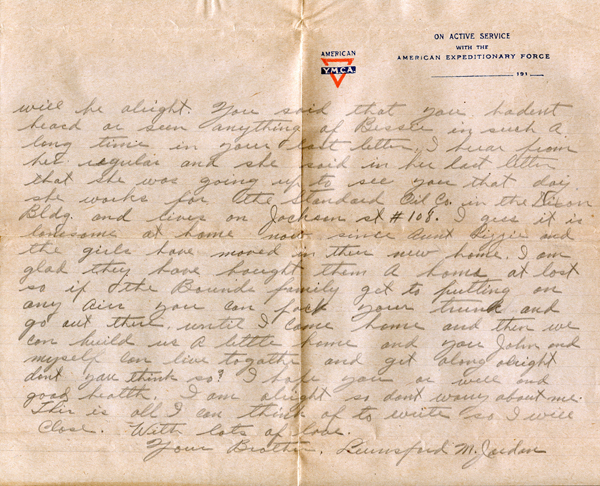 ON ACTIVE SERVICE
WITH THE
AMERICAN EXPEDITIONARY FORCE
191
AMERICAN
Y.M.C.A.
will be alright. You said that you hadent
heard or seen anything of Bessie in such a
long time in your last letter. I hear from
her regular and she said in her last letter
that she was going up to see you that day
she works for the Standard Oil Co. in the
Bldg. and lives on Jackson st #108. I gess it is
lonesome at home now since Aunt Lizzie and
the girls have moved in their new home. I am
glad they have bought them a home at last
so if the Bounds family get to putting on
any airs you can pack your trunk and
go out there, until I come home and then we
can build us a little home and you John and
myself can live togather and get along alright
dont you think so? I hope you ar well and
good health. I am alright so dont worry about me.
This is all I can think of to write so I will
Close. With lots of love.
Your Brother. Lunsford M. Jordan